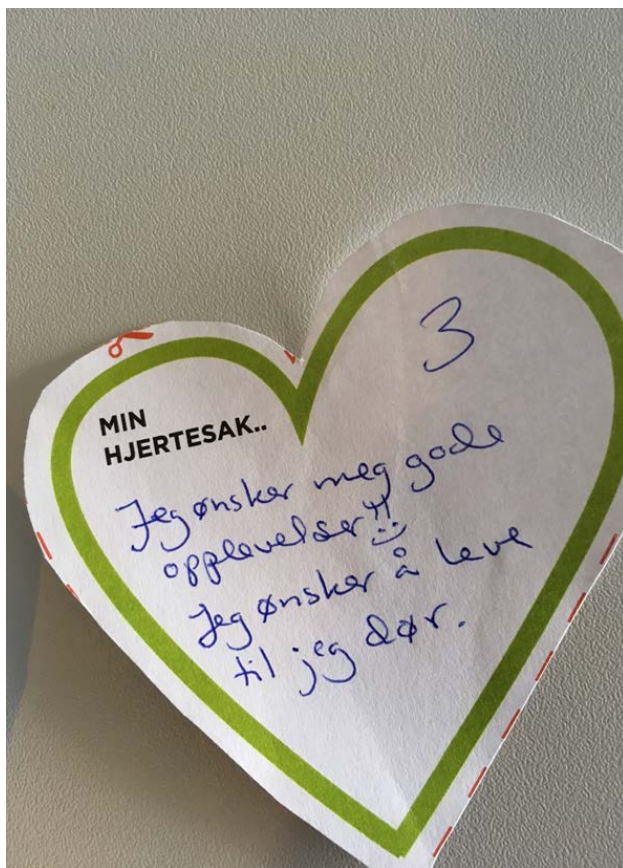 3
MIN
HJERTESAK..
Jeg ønsker meg gode
opplevelser!!
Jeg ønsker å leve
til jeg dør.